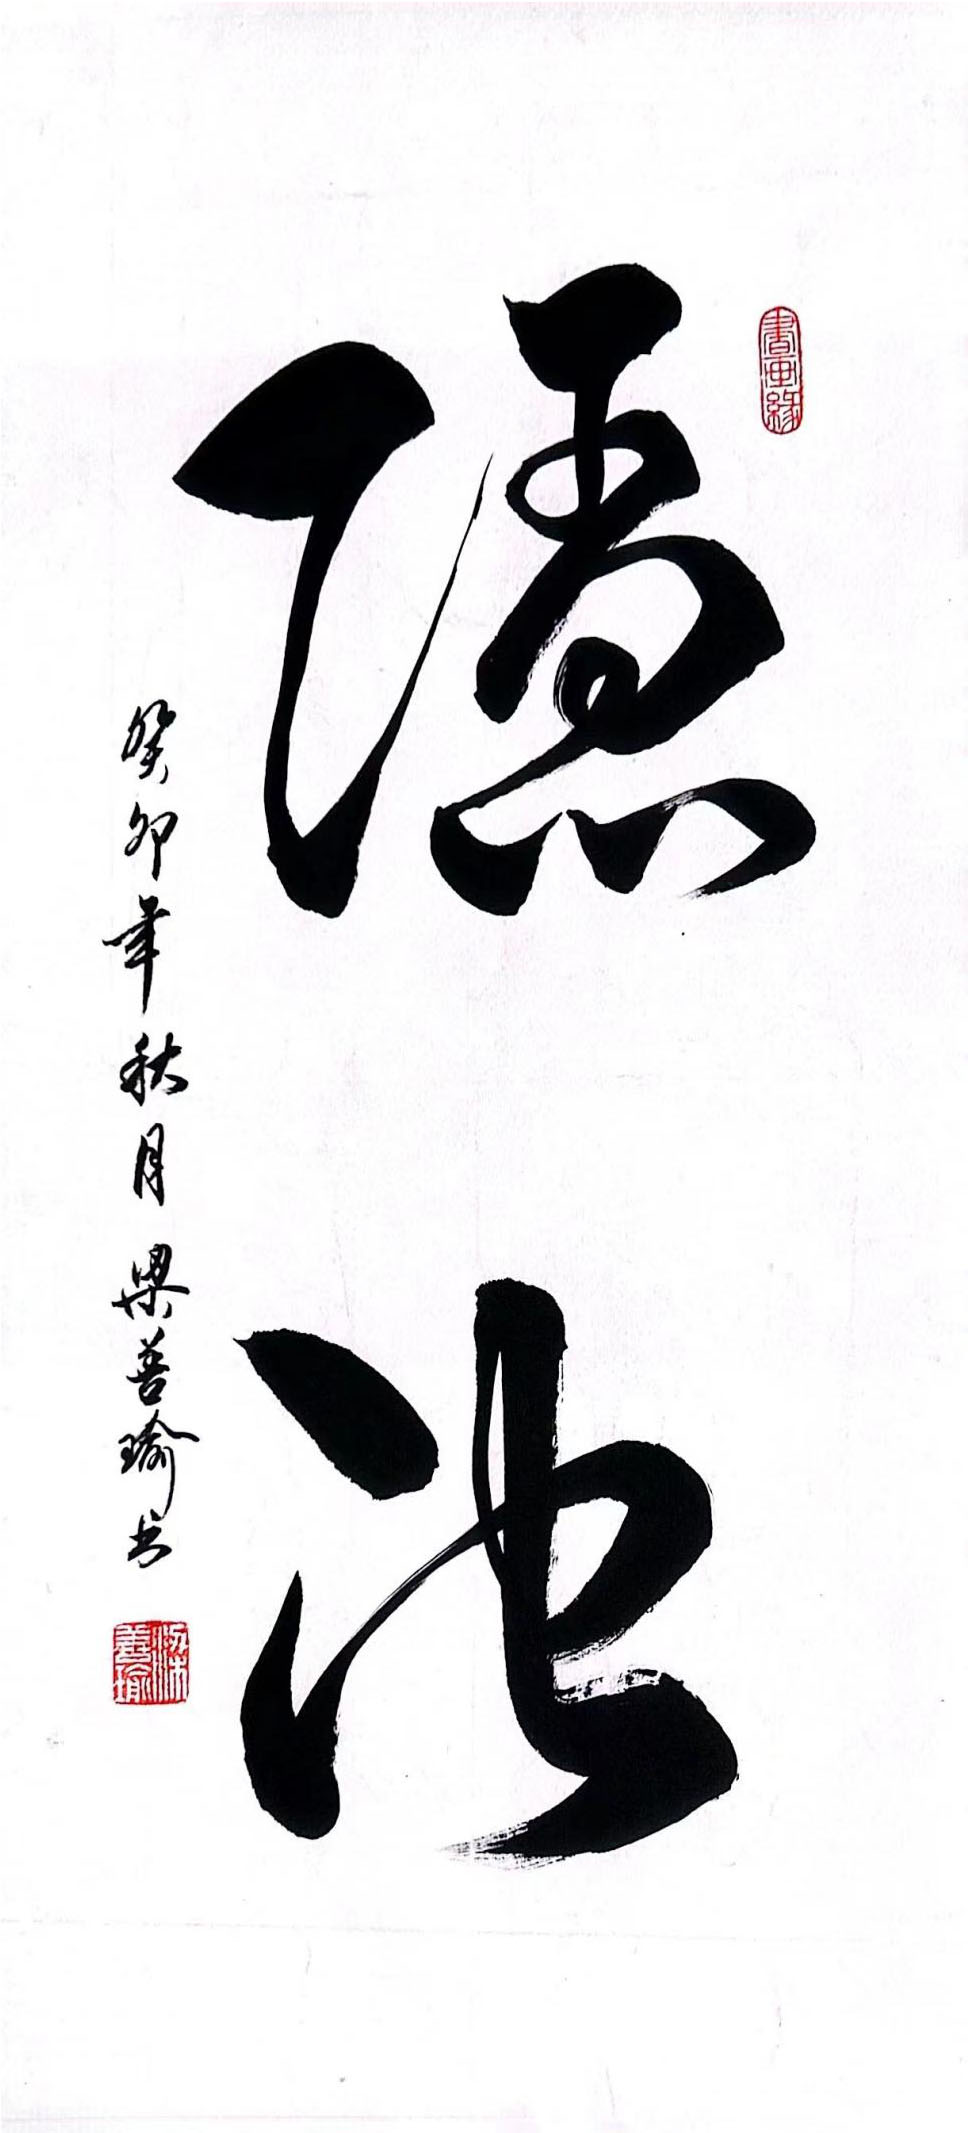 書画緣
隱池
癸卯年秋月梁善瑜书
梁善瑜